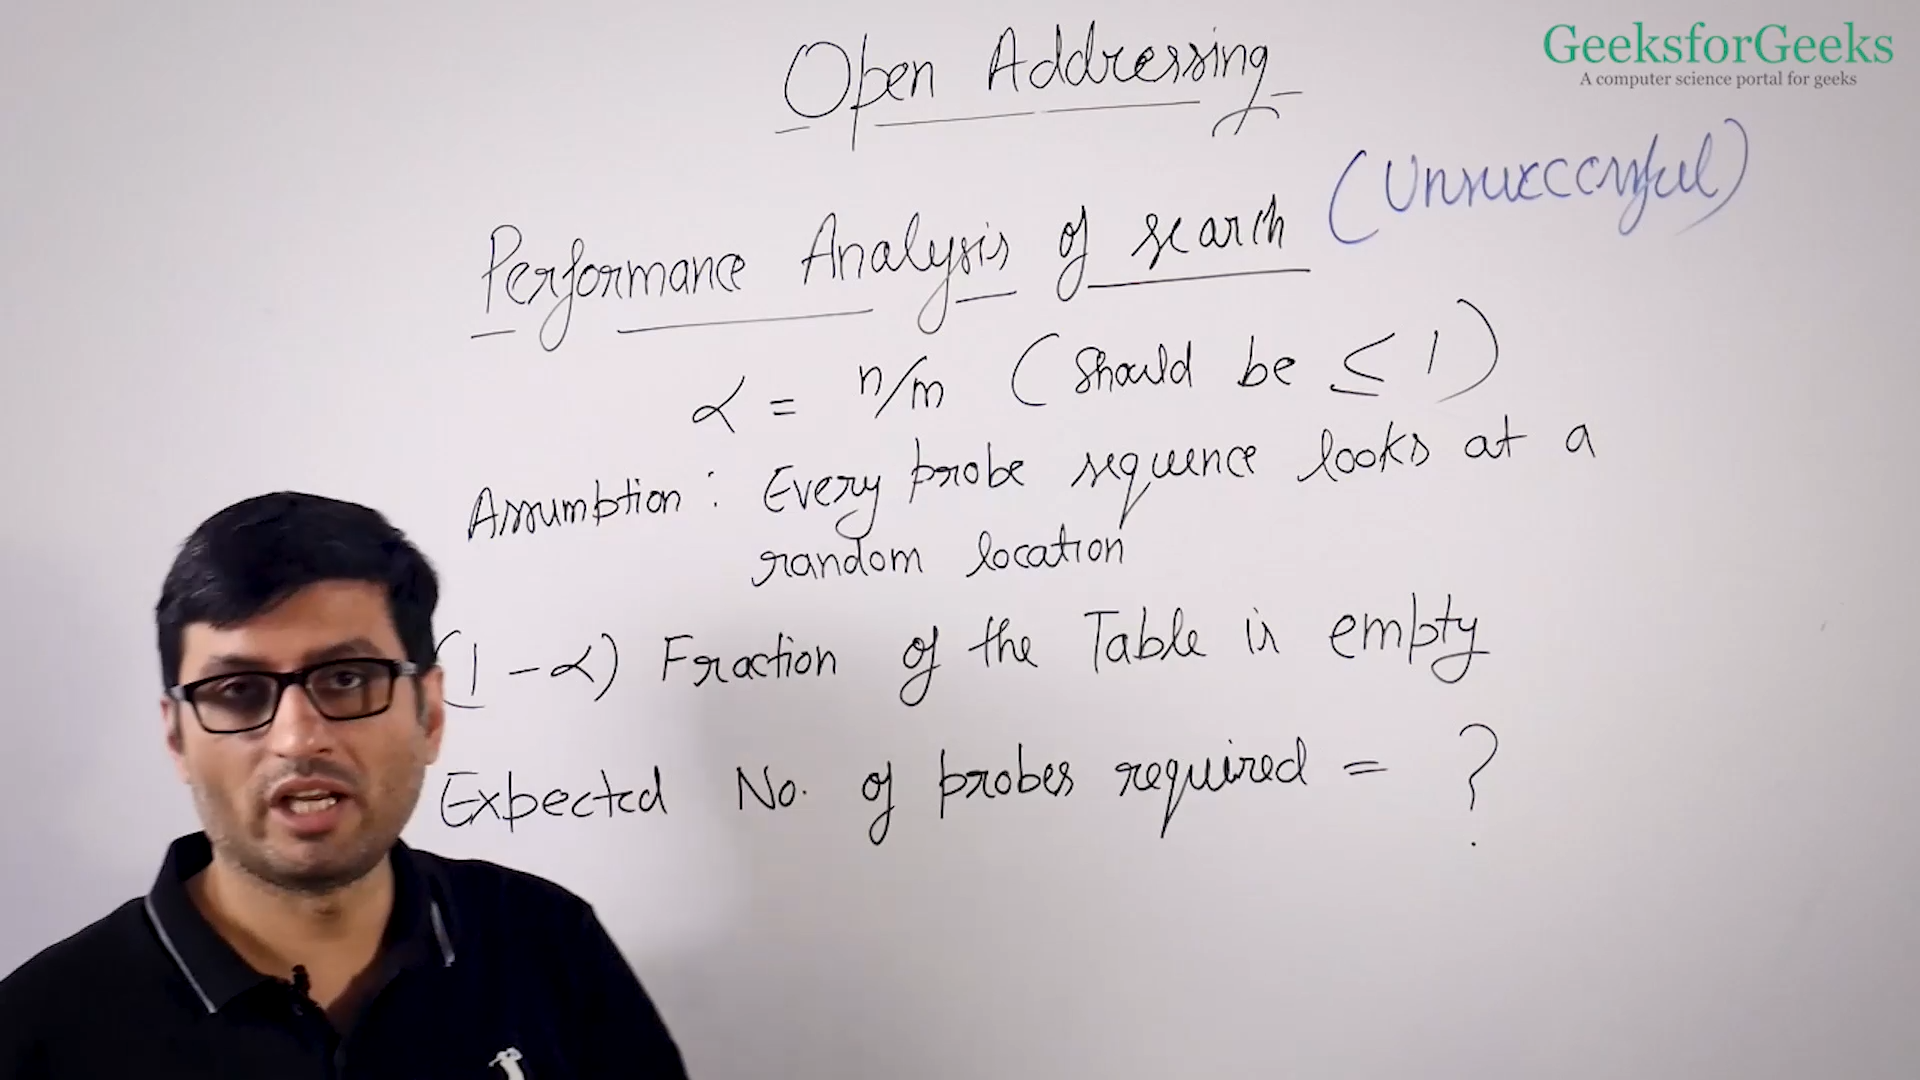 GeeksforGeeks
A computer science portal for geeks
Open Addressing
Performance Analysis of search (Unsuccessful)
α = n/m (should be ≤ 1)
Assumption : Every probe sequence looks at a
random location
(1 - α) Fraction of the Table is empty
Expected No. of probes required = ?